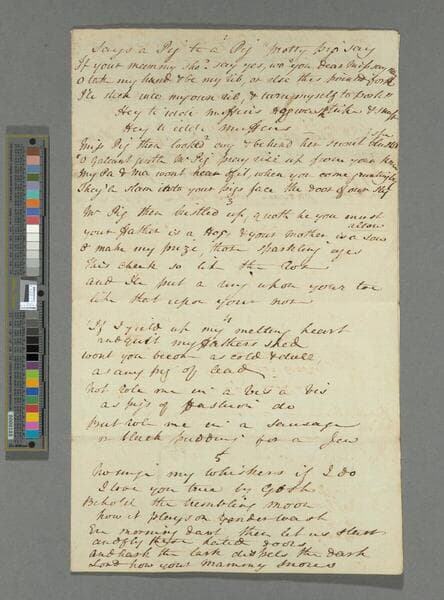 Says a Pig to a Pig pretty pig say
If your mammy sho.d say yes, wo.d you dear miss say nay
O take my hand & be my rib, or else this pointed fork
I'll stick into my own rib, & turn myself to pork
Hey ti iddle muffins hogwash tike &
Hey ti iddle muffins
2
Miss Pig then looked coy & behind her snout
O galant youth Mr Pig pray rise up from your knees
my Da & ma wont hear of it, when you come grunting by
They'd slam into your pigs face the door of our Sty
3
Mr Pig then bustled up, quoth he you must
allow
your father is a Hog & your mother is a sow
& make my prize, those sparkling eyes
This cheek so like the Rose
and I'll put a ring upon your toe
like that upon your nose
4
If I yield up my melting heart
and quit my fathers shed
wont you become as cold & dull
as any pig of lead
Not role me in a vis a vis
as pigs of fashion do
But role me in a sausage
or black pudding for a Jew
5
No singe my whiskers if I do
I love you true by Gosh
Behold the trembling moon
how it plays on yonder wash
Ere morning dawn then let us start
and fly these hated doors
and hark the lark dispels the dark
Lord how your mammy snores